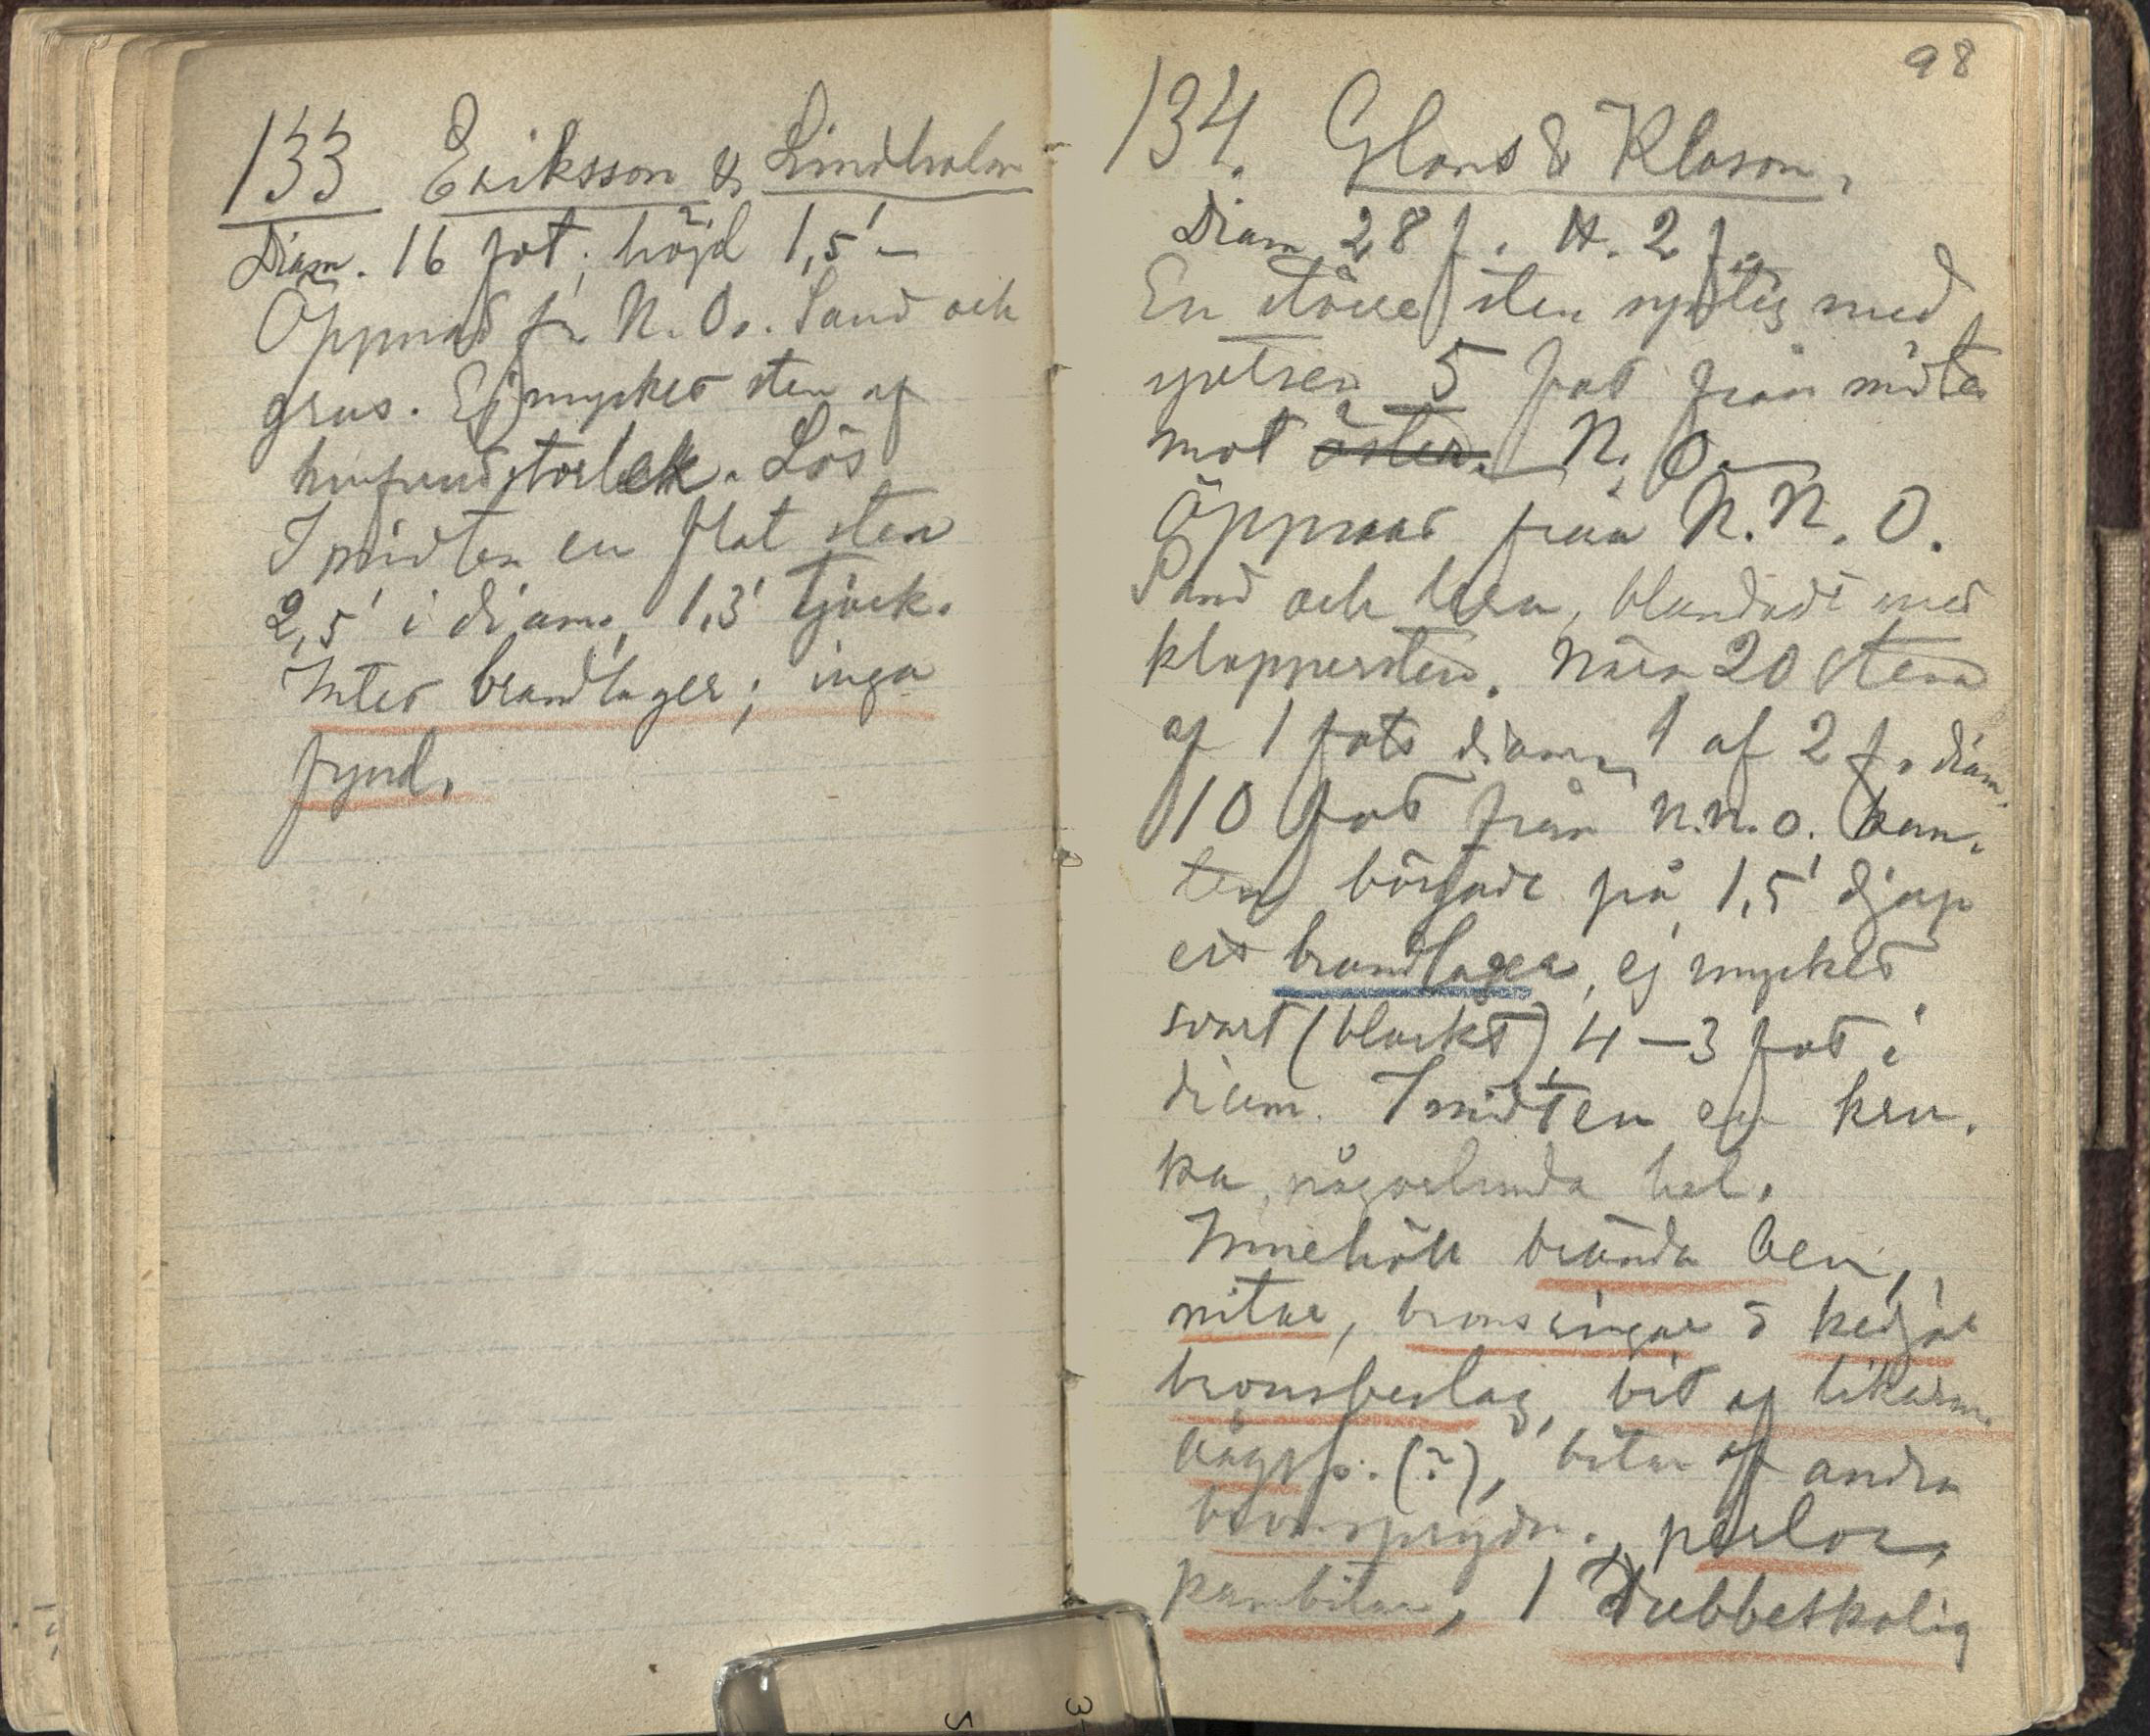 133 Eriksson & Lindholm
Diam. 16 fot; höjd 1,5' –
Öppnad fr. N. O. Sand och
grus. Ej mycket sten af
hufvudstorlek. Lös
I midten en flat sten
2,5' i diam., 1,3' tjock.
Intet brandlager; inga
fynd.
98
134. Glans & Klason.
Diam 28 f. H. 2 f.
En större sten syntes med
ytsen 5 fot från midten
mot öster. N. O.
Öppnad från N. N. O.
Sand och lera, blandadt med
klappersten. Nära 20 stenar
af 1 fots diam, 1 af 2 f. diam.
10 fot från N.N.O. kan-
ten började på 1,5' djup
ett brandlager, ej mycket
svart (blackt), 4–3 fot i
diam. I midten en kru-
ka, någorlunda hel.
Innehöll brända ben,
nitar, bronsringar o kedjor
bronsbeslag, bit af likarm.
bågsp. (?), bitar af andra
bronsprydn., perlor,
kambitar, 1 dubbelskalig